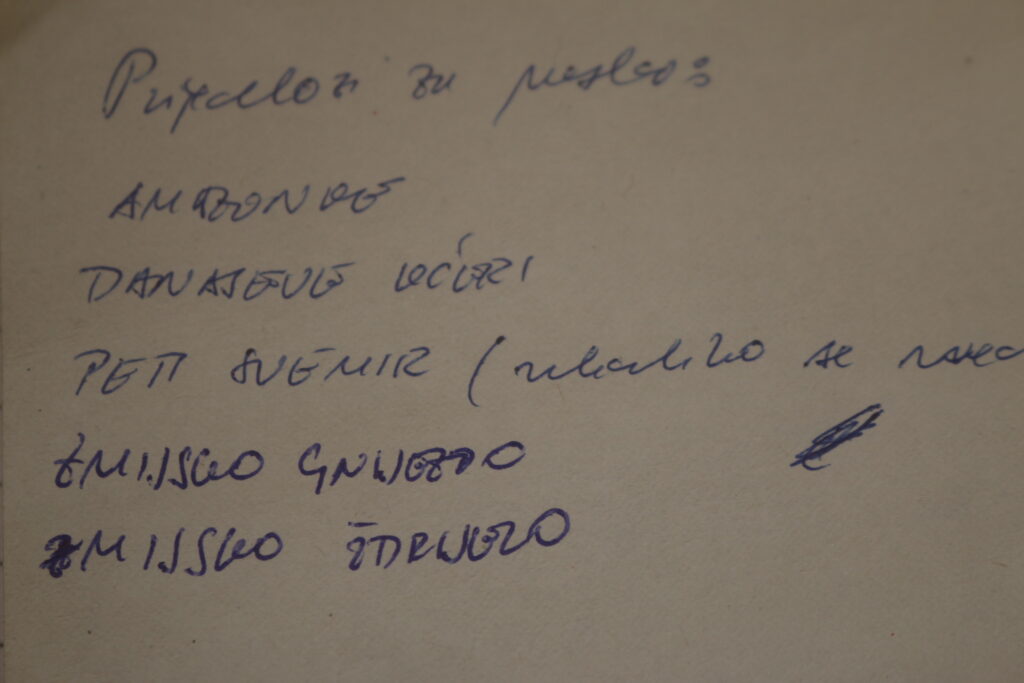 Prijedlozi za naslov:
AMAZONKE
DANAJEVE KĆERI
PETI SVEMIR (
ZMIJSKO GNIJEZDO
ZMIJSKO ŽDRIJELO